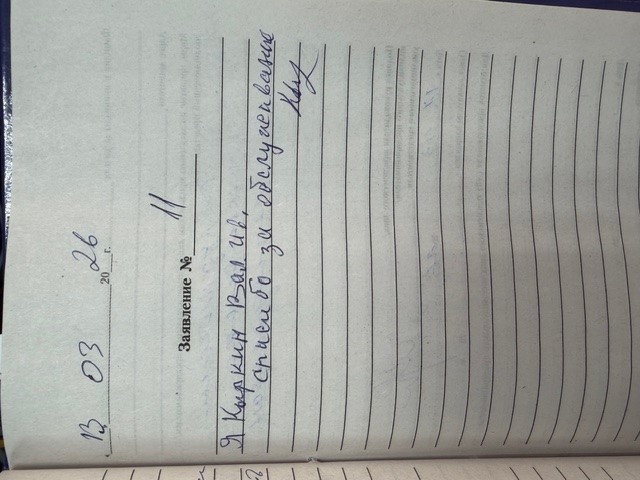 13 03 2026 г.
Заявление № 11
Я Кыркин Вал. И.,
спасибо за обслуживание